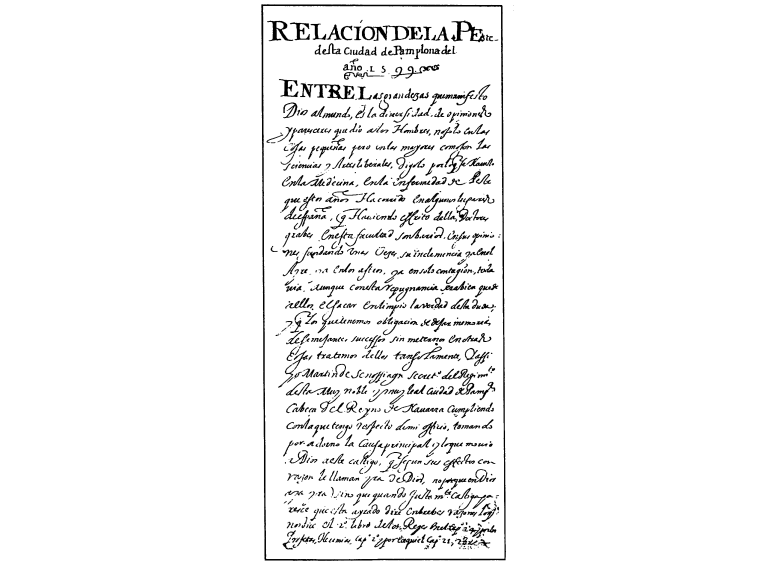 RELACION DE LA PEste
desta Ciudad de Pamplona del
año. 1599
ENTRE Las grandezas que manifesto
Dios al mundo, es la diuersidad, de opiniones
y pareceres que dio a los Hombres, no solo en las
cosas pequeñas pero en las mayores como son las
sciencias y Artes liberales, Digolo por lo q se
en la Medicina, en la Infermedad de Peste
que estos años Ha corrido en algunos lugares
de españa, q Hauiendo escrito della, Doctores
graues en esta facultad son varios en sus opinio-
nes fundando unas Vezes, su inclemencia ya en el
Ayre ya en los astros, ya en solo contagion, toda
uia aunque con esta repugnancia
el sacar en limpio la verdad desta duda,
y q los que tenemos obligacion de dexar memorias
de semejantes sucessos sin meternos en otras
cosas tratemos dellos tan solamente, Y assi
yo Martin de Senossiayn secret.º del Regim.to
desta Muy noble y muy leal Ciudad de Pamp.na
Cabeça del Reyno de Nauarra Cumpliendo
con la que tengo respecto de mi officio, tomando
por la Causa principal y lo que mouio
a Dios a este castigo, q segun sus effectos con
razon le llaman yra de Dios, no porque en Dios
aya yra, sino que quando Justa m.te castiga pa-
resce que esta ayrado
el 2.º libro de los Reyes cap.º
cap.º y por Ezequiel Cap.º 21,